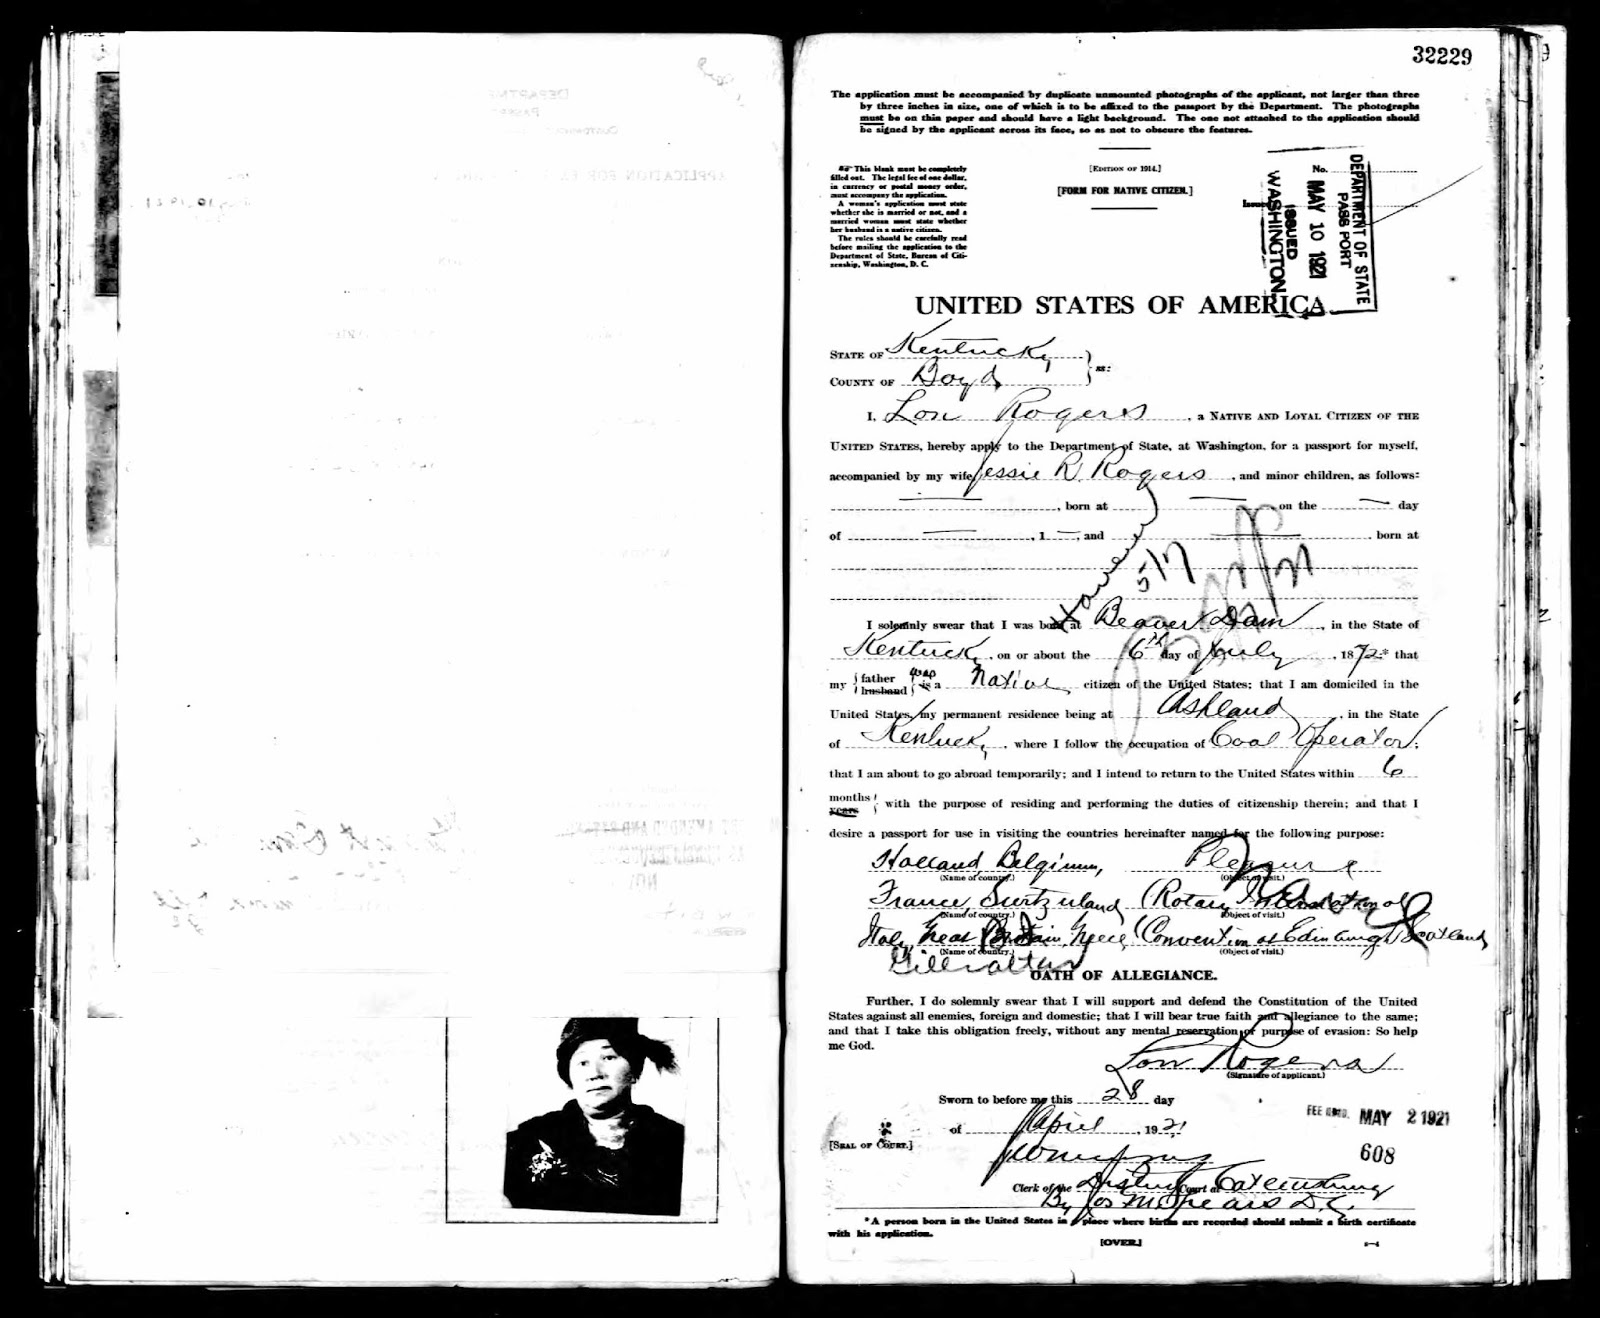 32229
The application must be accompanied by duplicate unmounted photographs of the applicant, not larger than three
by three inches in size, one of which is to be affixed to the passport by the Department. The photographs
must be on thin paper and should have a light background. The one not attached to the application should
be signed by the applicant across its face, so as not to obscure the features.
This blank must be completely
filled out. The legal fee of one dollar,
in currency or postal money order,
must accompany the application.
A woman's application must state
whether she is married or not, and a
married woman must state whether
her husband is a native citizen.
The rules should be carefully read
before mailing the application to the
Department of State, Bureau of Citi-
zenship, Washington, D. C.
[EDITION OF 1914.]
[FORM FOR NATIVE CITIZEN.]
No.
DEPARTMENT OF STATE
PASSPORT
MAY 10 1921
ISSUED
WASHINGTON
UNITED STATES OF AMERICA.
STATE OF Kentucky
COUNTY OF Boyd
ss:
I, Lon Rogers, a NATIVE AND LOYAL CITIZEN OF THE
UNITED STATES, hereby apply to the Department of State, at Washington, for a passport for myself,
accompanied by my wife, Jessie R. Rogers, and minor children, as follows:
, born at on the day
of , 1 , and , born at
5/7
I solemnly swear that I was born at Beaver Dam, in the State of
Kentucky, on or about the 6th day of July, 1872,* that
my father husband was is a Native citizen of the United States; that I am domiciled in the
United States, my permanent residence being at Ashland, in the State
of Kentucky, where I follow the occupation of Coal Operator;
that I am about to go abroad temporarily; and I intend to return to the United States within 6
months years with the purpose of residing and performing the duties of citizenship therein; and that I
desire a passport for use in visiting the countries hereinafter named for the following purpose:
Holland, Belgium, Pleasure
(Name of country.) (Object of visit.)
France, Switzerland (Rotary International
(Name of country.) (Object of visit.)
Italy, Great Britain, Greece (Convention at Edinburgh Scotland
(Name of country.) (Object of visit.)
Gilbraltar
OATH OF ALLEGIANCE.
Further, I do solemnly swear that I will support and defend the Constitution of the United
States against all enemies, foreign and domestic; that I will bear true faith and allegiance to the same;
and that I take this obligation freely, without any mental reservation or purpose of evasion: So help
me God.
Lon Rogers
(Signature of applicant.)
Sworn to before me this 28 day
of April, 1921
FEE MAY 2 1921
608
[SEAL OF COURT.]
Clerk of the District Court at Catlettsburg
By D.C.
*A person born in the United States in a place where births are recorded should submit a birth certificate
with his application.
[OVER.]